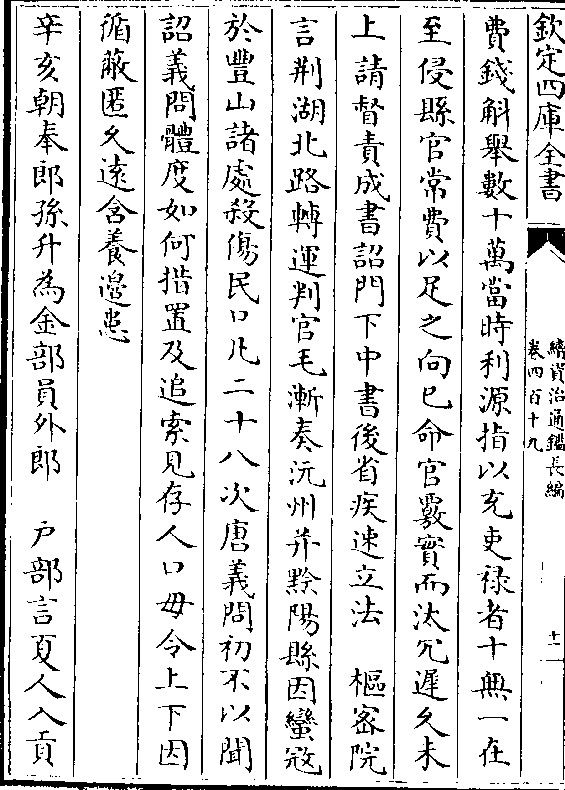 欽定四庫全書
續資治通鑑長編
卷四百十九
十二
費錢斛舉數十萬當時利源指以充吏禄者十無一在
至侵縣官常費以足之向已命官覈實而汰冗遲久未
上請督責成書詔門下中書後省疾速立法　樞密院
言荆湖北路轉運判官毛漸奏沅州并黔陽縣因蠻冦
於豐山諸處殺傷民口凡二十八次唐義問初不以聞
詔義問體度如何措置及追索見存人口毋令上下因
循蔽匿久逺含養邊患
辛亥朝奉郎孫升為金部員外郎　户部言夏人入貢